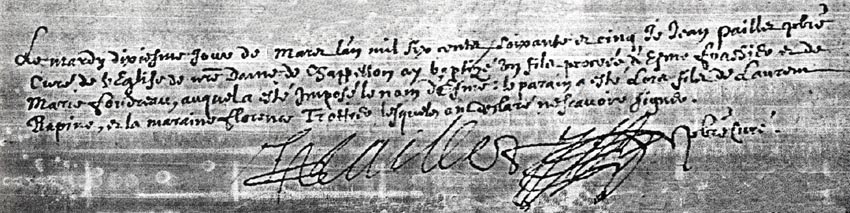 Le mardy dixiesme Jour de Mars lan mil six cents soixante et cinq Je Jean Paillet pbre
Curé de L'Eglise de nre Dame de Chappellon ay baptizé un fils procreé d'Esme et de
Marie auquel a esté Imposé le nom d'Esme: le parain a esté fils de Laurent
Rapine, et la maraine Florence Trottier lesquels ont declaré ne scavoir signer.
J Paillet pbre Curé.